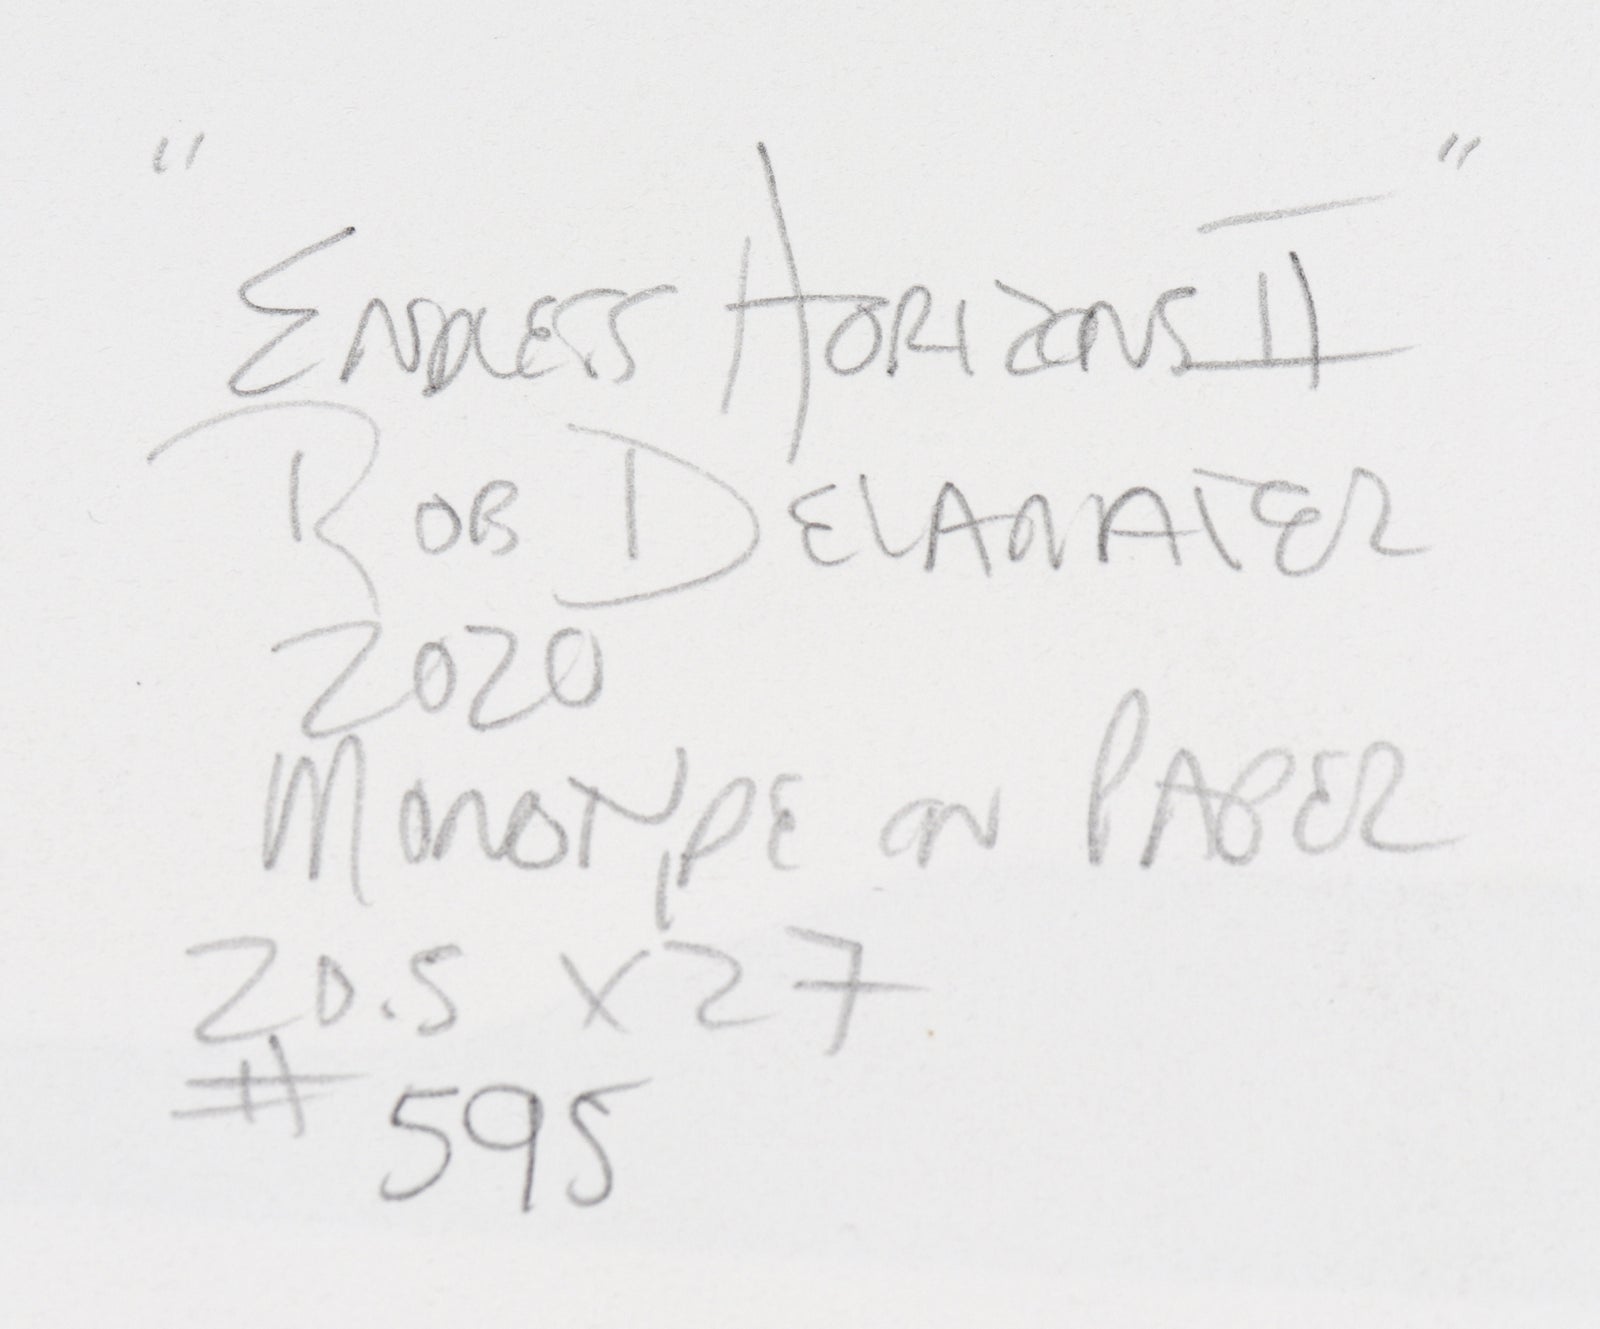 "ENDLESS HORIZONS II"
ROB DELAMATER
2020
MONOTYPE ON PAPER
20.5 x 27
# 595